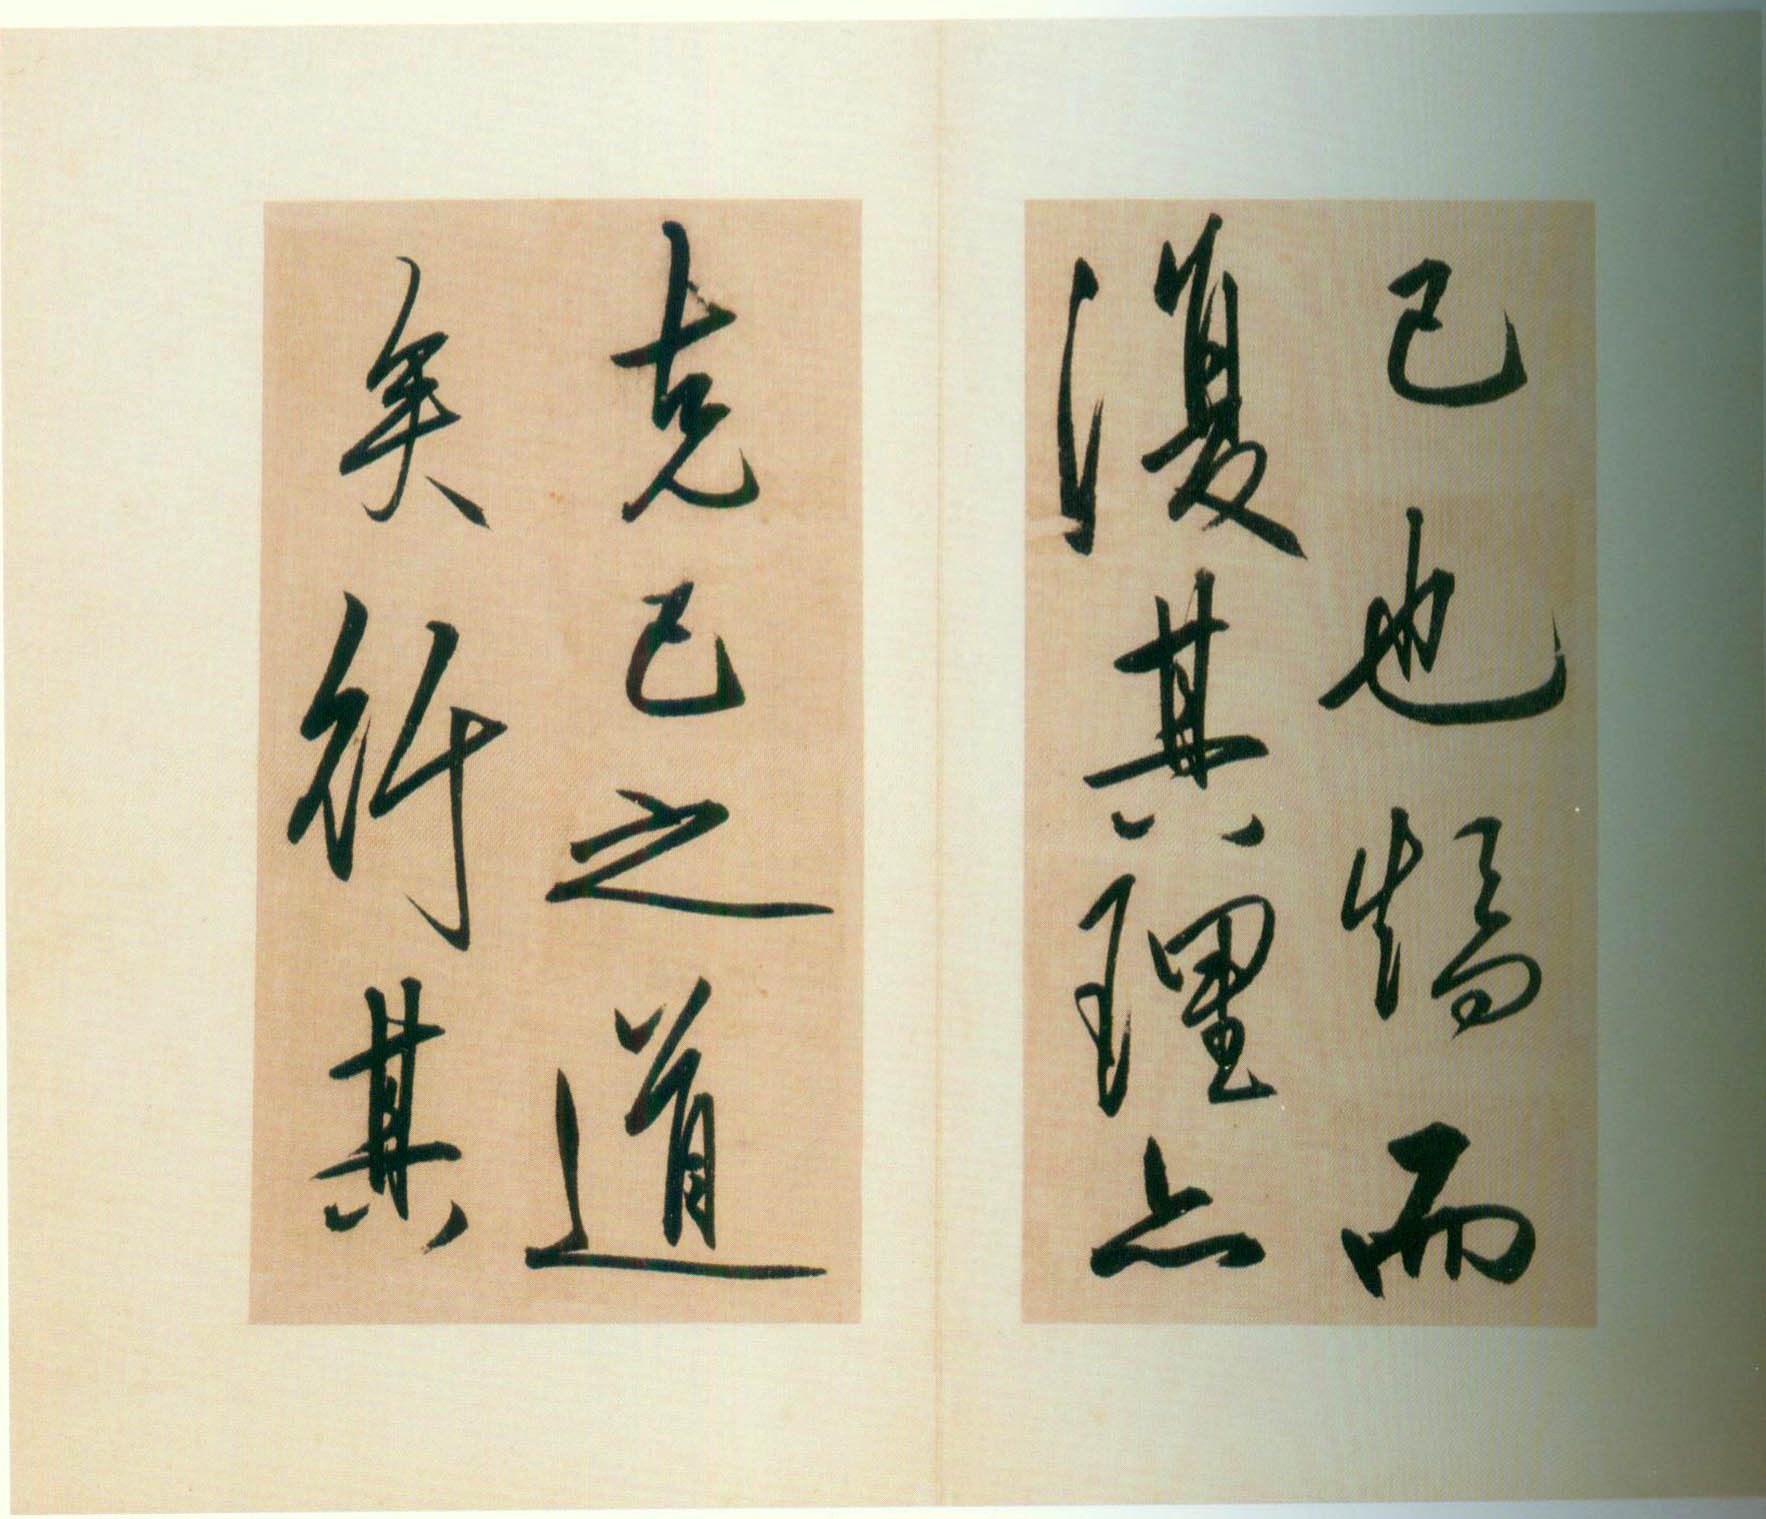 己也矯而
復其理亦
克己之道
矣行其